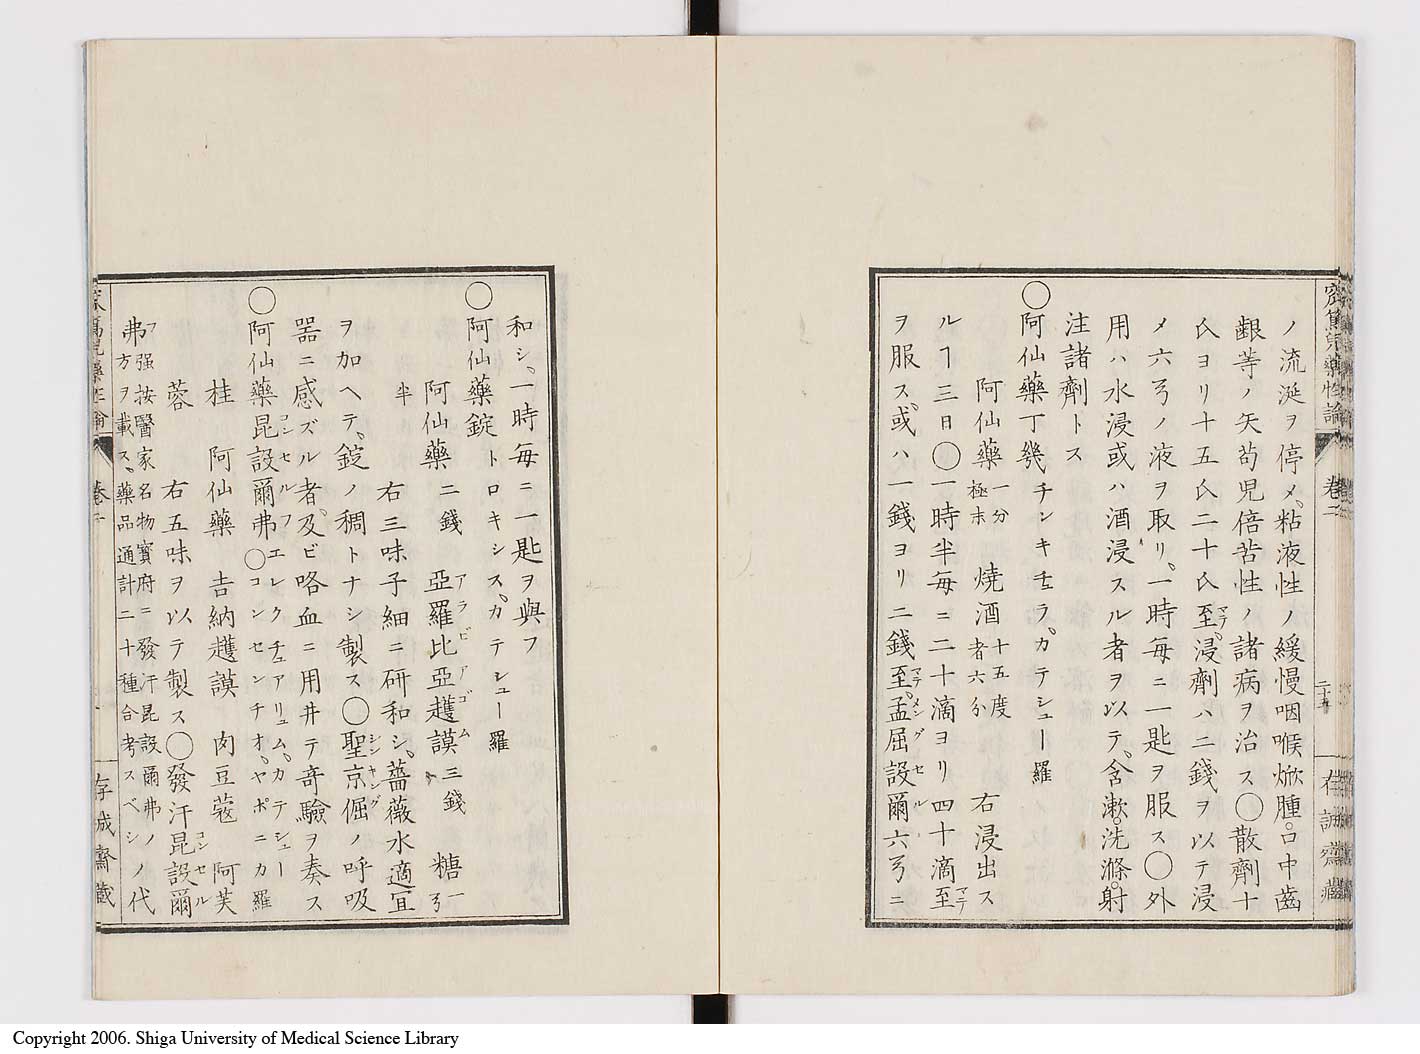 ノ流涎ヲ停メ、粘液性ノ緩慢咽喉焮腫。口中齒
齦等ノ失苟児倍苦性ノ諸病ヲ治ス〇散劑十
氏ヨリ十五氏二十氏至マデ、浸劑ハ二錢ヲ以テ浸
メ六弓ノ液ヲ取リ、一時毎ニ一匙ヲ服ス〇外
用ハ水浸或ハ酒浸スル者ヲ以テ、含漱。洗滌。射
注諸劑トス
〇阿仙藥丁幾 チンキチュラ、カテシュー 羅
阿仙藥 一分極末 燒酒 十五度者六分 右浸出ス
ルヿ三日〇一時半毎ニ二十滴ヨリ四十滴至マデ
ヲ服ス、或ハ一錢ヨリ二錢至マデ、孟屈設爾メングセル六弓ニ
窊篤児藥性論 卷二 二十五 存誠齋藏
和シ、一時毎ニ一匙ヲ與フ
〇阿仙藥錠 トロキシス、カテシュー 羅
阿仙藥 二錢半 亞羅比亞護謨アラビアゴム 三錢 糖 一弓
右三味子細ニ研和シ、薔薇水適宜
ヲ加ヘテ、錠ノ稠トナシ製ス〇聖京倔シンキングノ呼吸
器ニ感ズル者、及ビ咯血ニ用井テ竒驗ヲ奏ス
〇阿仙藥昆設爾弗コンセルフ〇コンセンチオ、ヤポニカ 羅 エレクチュアリュム、カテシュー
桂 阿仙藥 吉納護謨 肉豆蔲 阿芙
蓉 右五味ヲ以テ製ス〇發汗昆設爾コンセル
弗フ 方ヲ載ス、藥品通計二十種合考スベシ 强按醫家名物寶府ニ發汗昆設爾弗ノ代
卷二 存誠齋藏
Copyright 2006. Shiga University of Medical Science Library